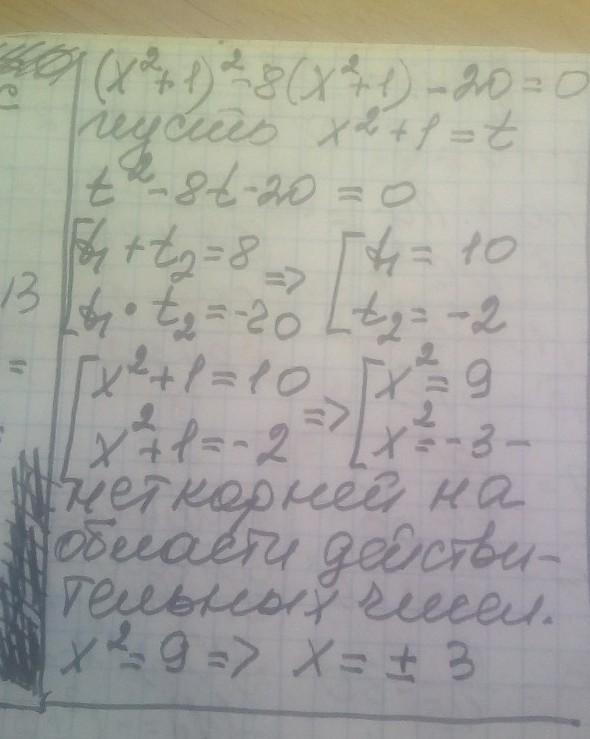 (x²+1)²-8(x²+1)-20=0
пусть x²+1=t
t²-8t-20=0
[t₁+t₂=8 => [t₁=10
t₁·t₂=-20 t₂=-2
[x²+1=10 => [x²=9
x²+1=-2 x²=-3-
нет корней на
области действи-
тельных чисел.
x²=9=> x=±3
с
13
=